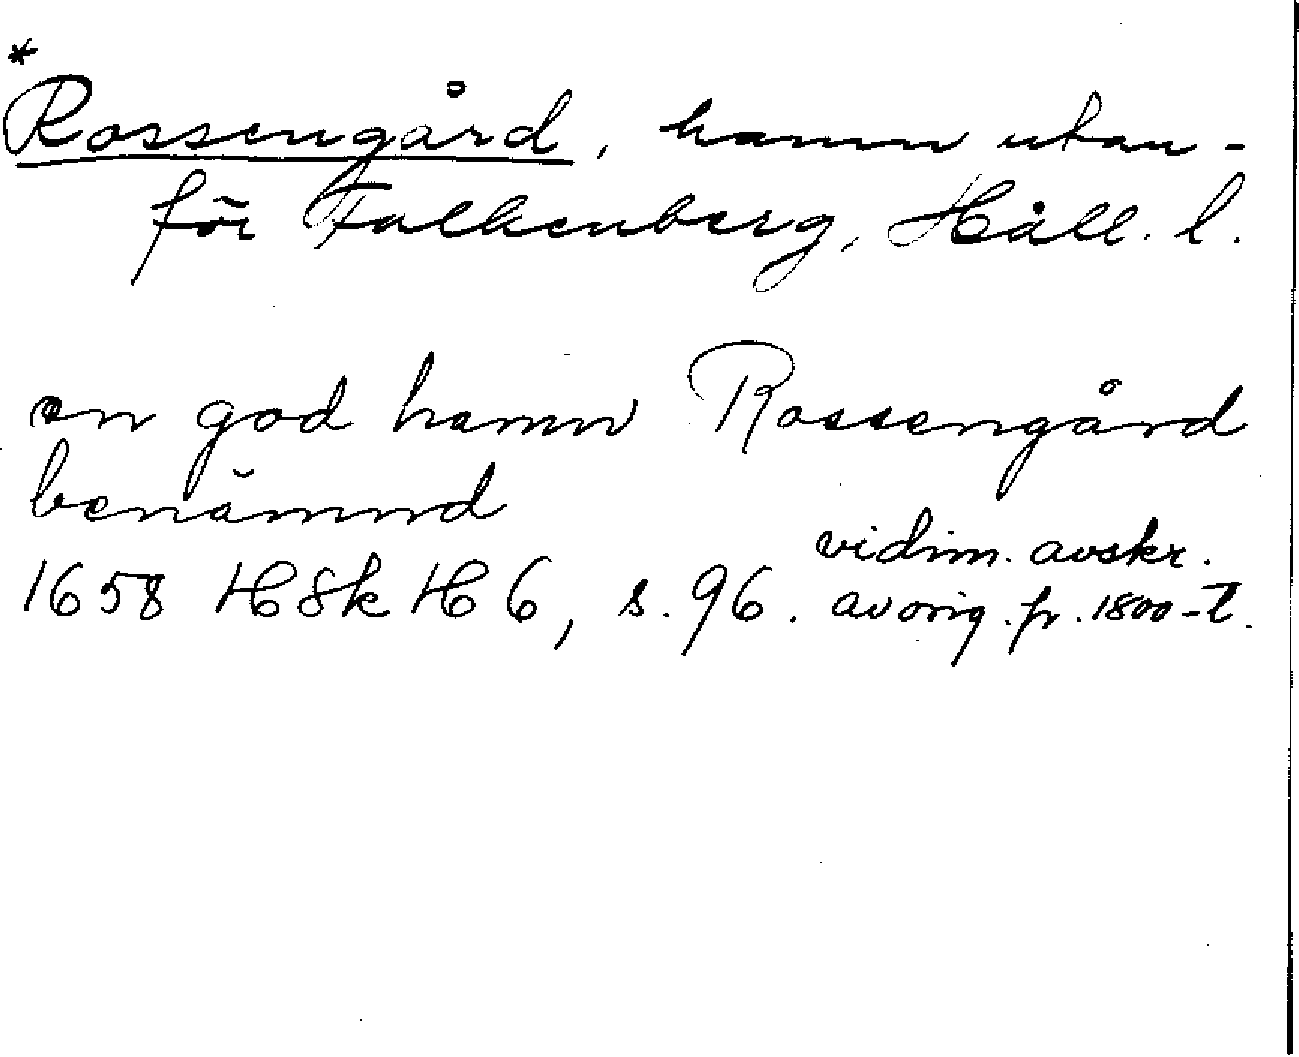 *
Rossengård, hamn utan-
för Falkenberg, Håll. l.
en god hamn Rossengård
benämnd
1658 H8k H6, s. 96. vidim. avskr.
av orig. fr. 1800-t.